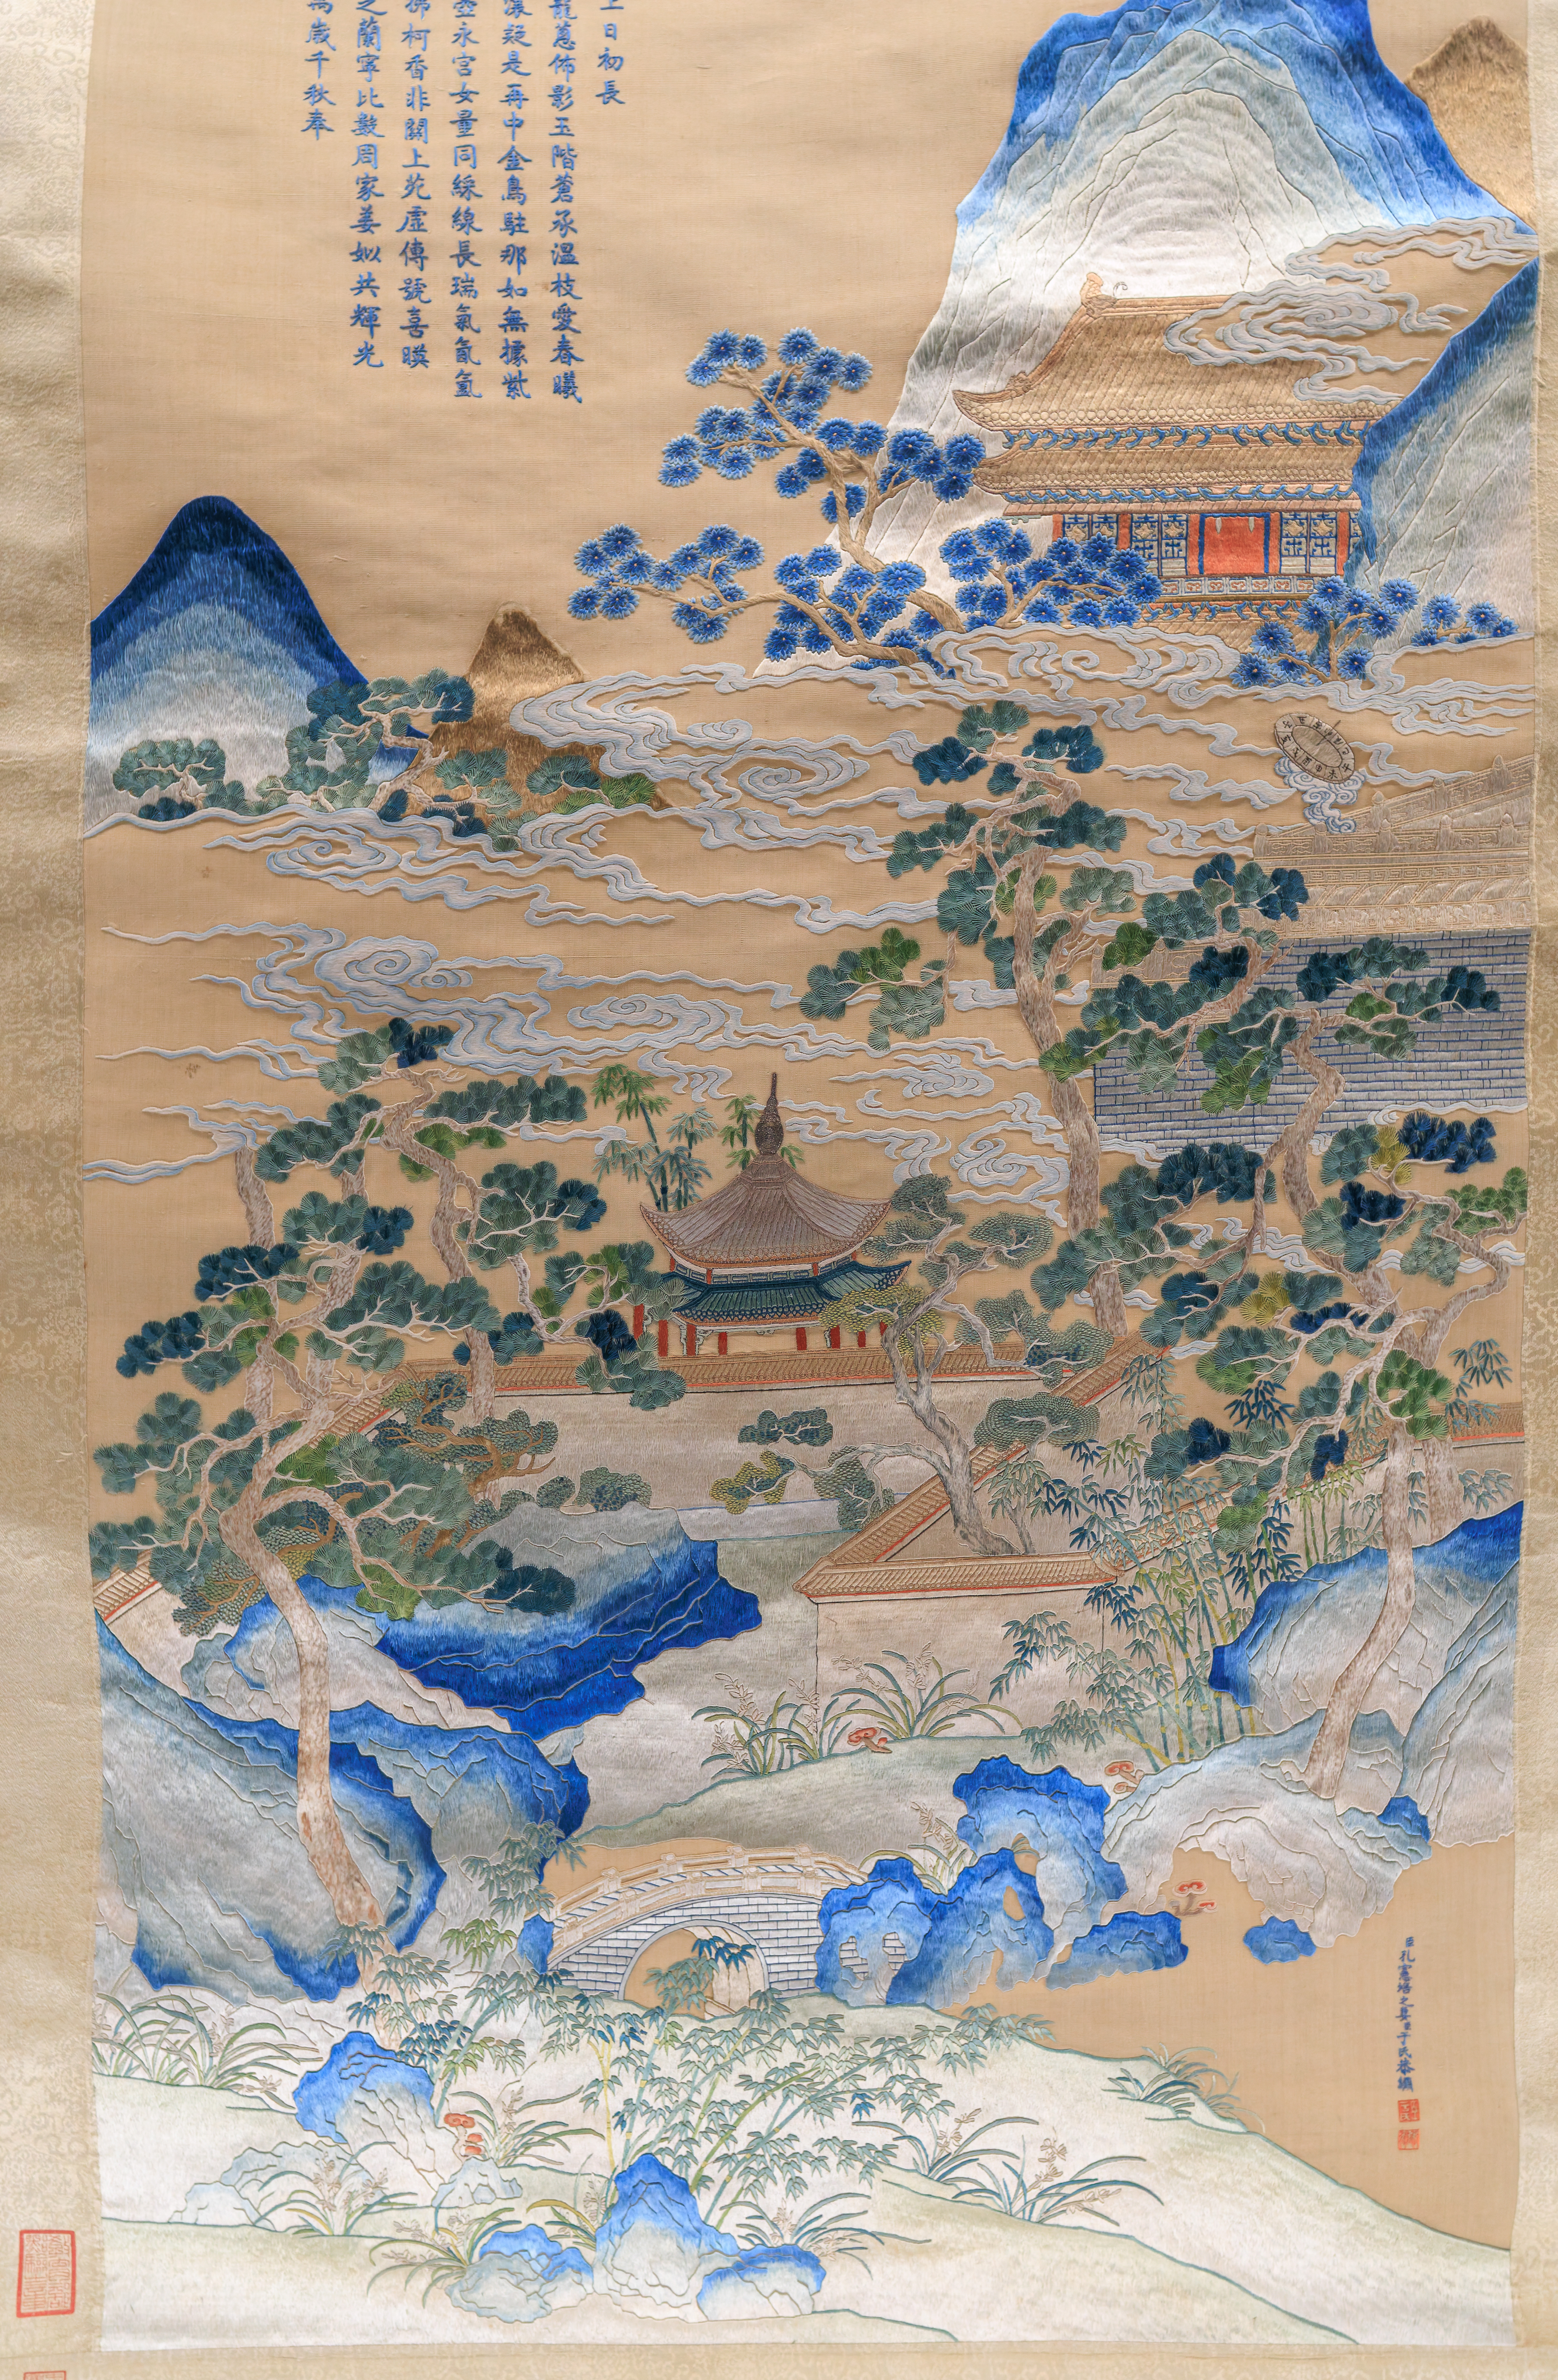 日初長
蔥佈影玉階蒼承溫枝愛春曦
濃疑是再中金烏駐那如無據紫
壺永宮女量同綵線長瑞氣氤氳
拂柯香非關上苑虛傳號喜暎
之蘭寧比數周家姜姒共輝光
萬歲千秋奉
臣孔憲培之妻臣于氏恭繡